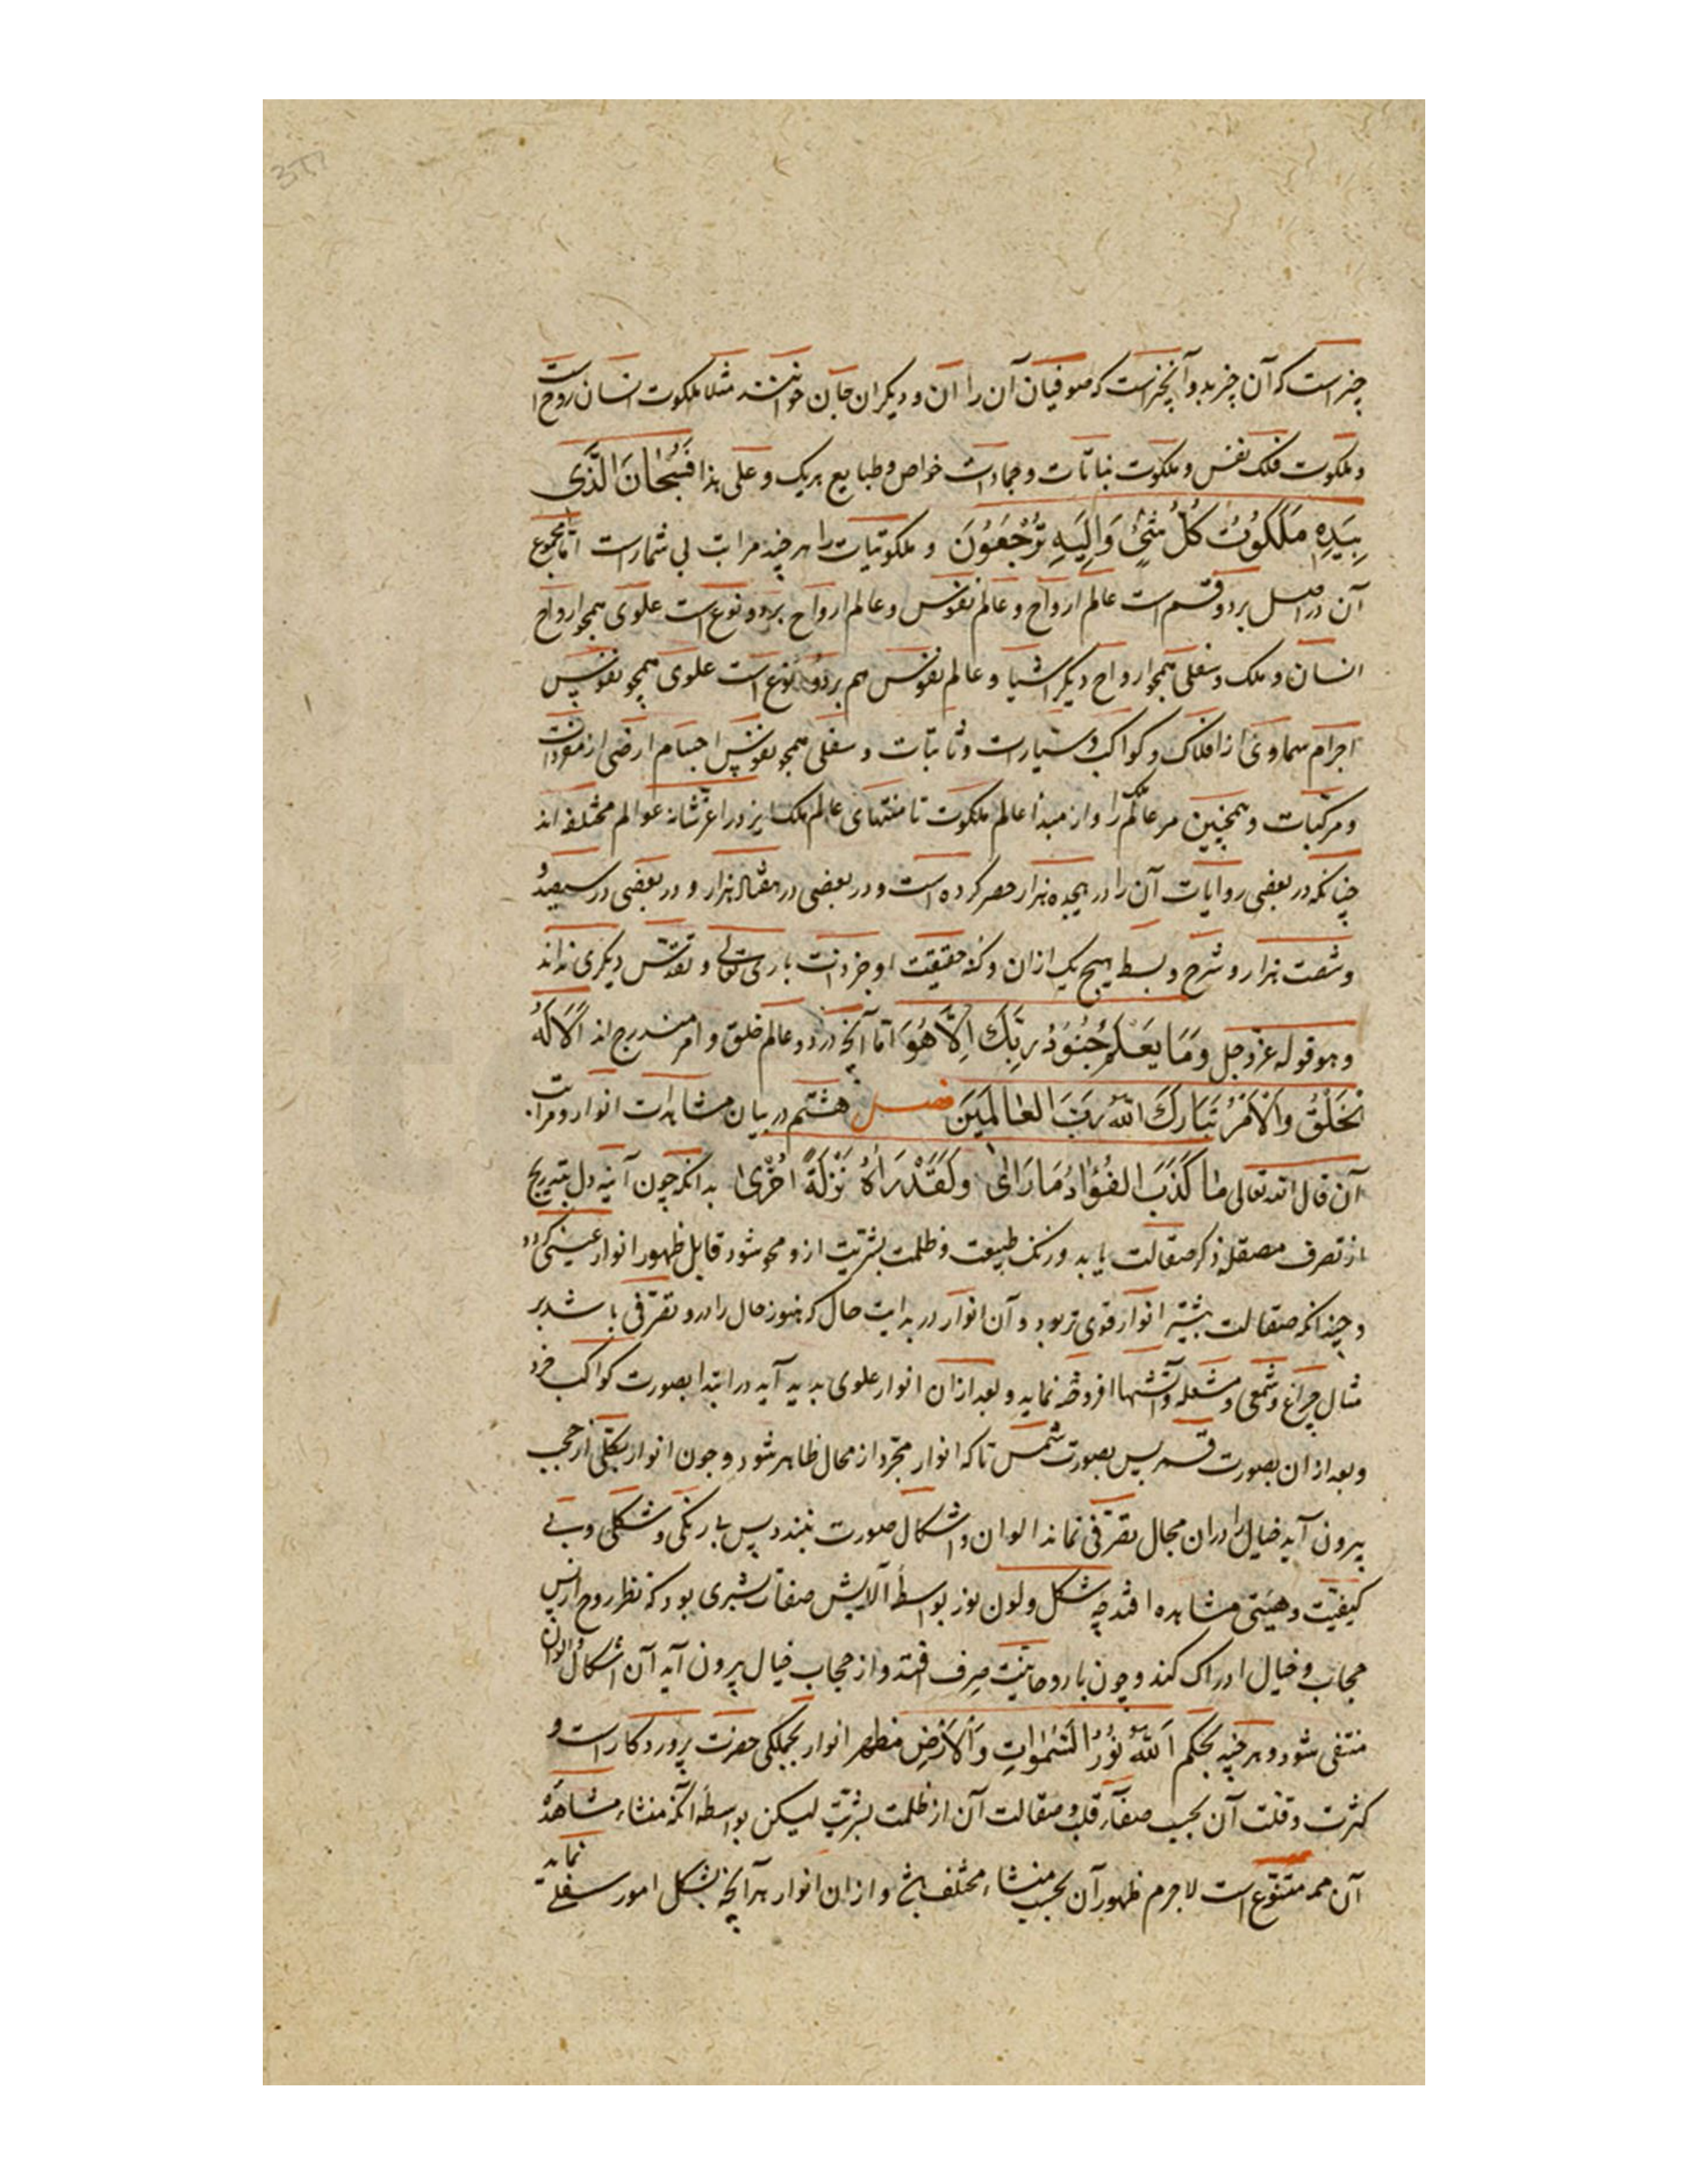 چیز است که آن چیز بدو آنچیزست که صوفیان آن را آن و دیکران جان خوانند مثلا ملکوت انسان روح است
و ملکوت فلک نفس و ملکوت نباتات و جمادات خواص و طبایع هریک و علی هذا فَسُبْحَانَ الَّذِی
بِیَدِهِ مَلَکُوتُ کُلِّ شَیْءٍ وَاِلَیْهِ تُرْجَعُونَ و ملکوتیات را هرچند مراتب بی شمارست امّا مجموع
آن در اصل بر دو قسم است عالم ارواح و عالم نفوس و عالم ارواح بر دو نوع است علوی همچو ارواح
انسان و ملک و سفلی همچو ارواح دیکر اشیا و عالم نفوس هم بر دو نوع است علوی همچو نفوس
اجرام سماوی از افلاک و کواکب و سیارات و ثابتات و سفلی همچو نفوس اجسام ارضی از مفردات
و مرکّبات و همچنین مر عالم ملک را و از مبدأ عالم ملکوت تا منتهای عالم ملک ایزد را عزّ شانه عوالم مختلفه اند
چنانکه در بعضی روایات آن را در هیجده هزار حصر کرده است و در بعضی در هفتاد هزار و در بعضی در سیصد و
و شصت هزار و شرح و بسط هیچ یک از ان و کنه حقیقت او جز ذات باری تعالی و تقدّس دیکری نداند
و هو قوله عزّ و جل وَمَا یَعْلَمُ جُنُودَ رَبِّکَ اِلَّا هُوَ امّا آنچه در دو عالم خلق و امر مندرج اند اَلَا لَهُ
الْخَلْقُ وَالْاَمْرُ تَبَارَکَ اللّٰهُ رَبُّ الْعَالَمِینَ فصل هشتم در بیان مشاهدات انوار و مراتب
آن قال الله تعالی مَا کَذَبَ الْفُؤَادُ مَا رَاٰی وَلَقَدْ رَاٰهُ نَزْلَةً اُخْرٰی بدانکه چون آینه دل بتدریج
از تصرف مصقله ذکر صقالت یابد و زنک طبیعت و ظلمت بشریّت ازو محو شود قابل ظهور انوار غیبی کردد
و چندانکه صقالت بیشتر انوار قوی تر بود و آن انوار در بدایت حال که هنوز حال را درو تصرّفی باشد بر
مثال چراغ و شمعی و مشعله و آتشها افروخته نماید و بعد از ان انوار علوی پدید آید در ابتدا بصورت کواکب خرد
و بعد از ان بصورت قمر پس بصورت شمس تا که انوار مجرّد از محال ظاهر شود و چون انوار بکلّی از حجب
بیرون آید خیال را دران مجال تصرّفی نماند الوان و اشکال صورت نبندد پس بی رنکی و شکلی و بی
کیفیّت و هیئتی مشاهده افتد چه شکل و لون نور بواسطه آلایش صفات بشری بود که نظر روح از پس
حجاب و خیال ادراک کند و چون با روحانیّت صرف افتد و از حجاب خیال بیرون آید آن اشکال و الوان
منتفی شود و هرچند بحکم اَللّٰهُ نُورُ السَّمٰوَاتِ وَالْاَرْضِ مظهر انوار بجملکی حضرت پروردکار است و
کثرت و قلت آن بحسب صفآء قلب و صقالت آن از ظلمت بشریّت لیکن بواسطه آنکه منشاء مشاهده
آن همه متنوّع است لاجرم ظهور آن بحسب منشاء مختلف باشد و از ان انوار هر آنچه بشکل امور سفلی نماید